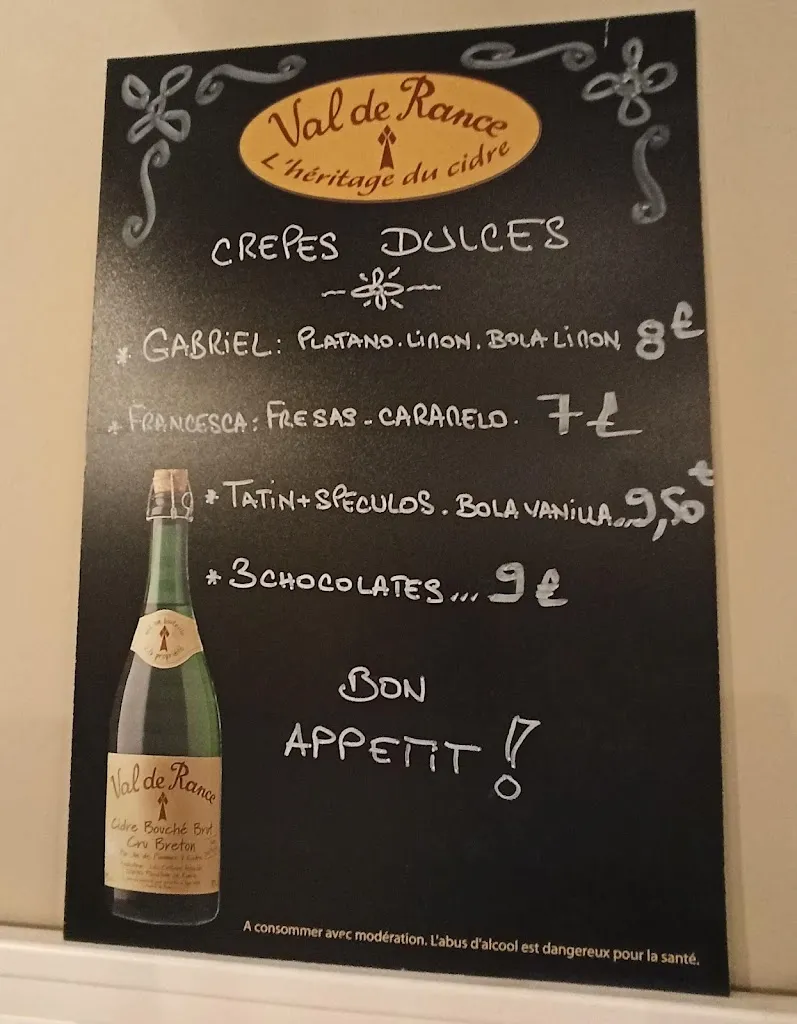 Val de Rance
L'héritage du cidre
CREPES DULCES
* GABRIEL: PLATANO. LIMON. BOLA LIMON 8€
* FRANCESCA: FRESAS - CARAMELO. 7€
* TATIN + SPECULOS. BOLA VANILLA... 9,50€
* 3 CHOCOLATES... 9€
BON
APPETIT!
Val de Rance
Cidre Bouché Brut
Cru Breton
A consommer avec modération. L'abus d'alcool est dangereux pour la santé.